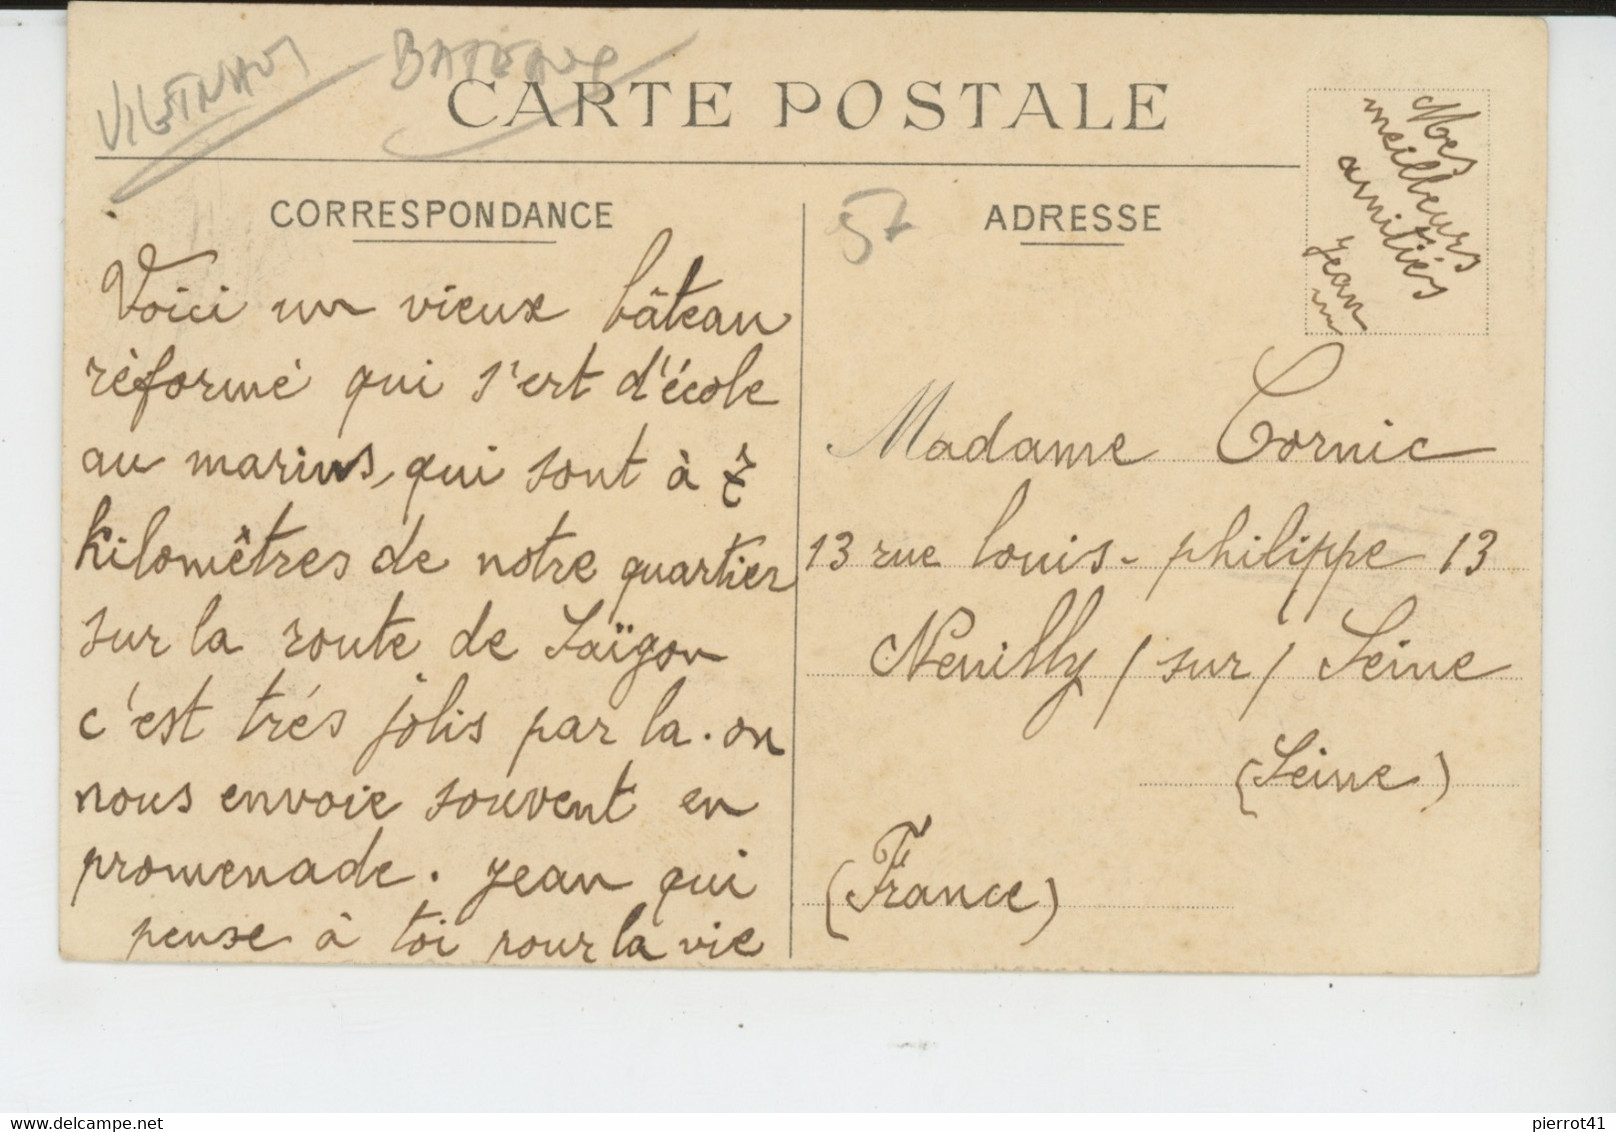 VIETNAM
CARTE POSTALE
CORRESPONDANCE
57
ADRESSE
Mes
meilleurs
amitiés
Jean
Voici un vieux bâteau
réformé qui s'ert d'école
au marins, qui sont à 7
kilomêtres de notre quartier
sur la route de Saïgon
c'est trés jolis par la. on
nous envoie souvent en
promenade. Jean qui
pense à toi pour la vie
Madame Cornic
13 rue louis-philippe 13
Neuilly / sur / Seine
(Seine)
(France)
pierrot41